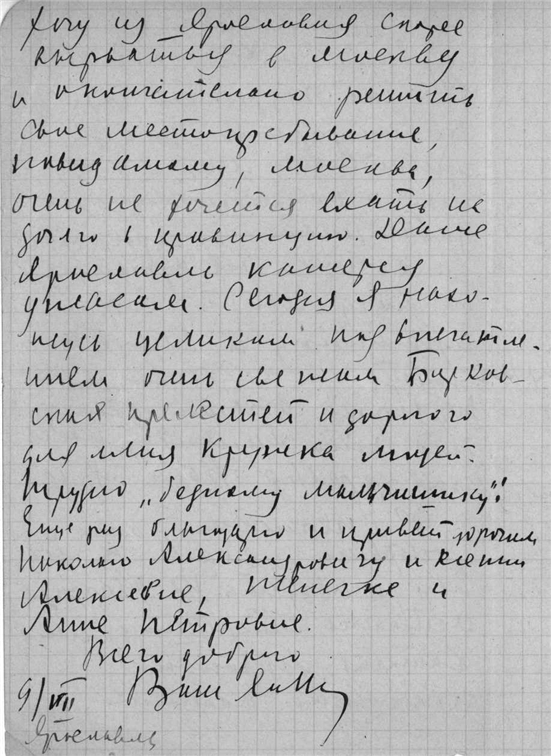 Хочу из Ярославля скорее
вырваться в Москву
и окончательно решить
свое местопребывание,
повидамому, Москва,
очень не хочется ехать на
долго в провинцию. Даже
Ярославль кажется
ужасом. Сегодня я нахо-
жусь целиком под впечатле-
нием очень свежим Борков-
ских прелестей и дорогого
для меня кружка людей.
Трудно „бедному мальчишку“!
Еще раз благодарю и привет горячий
Николаю Александровичу и Ксении
Алексеевне, Леночке и
Анне Петровне.
Всего доброго
Ваш
9/VIII
Ярославль